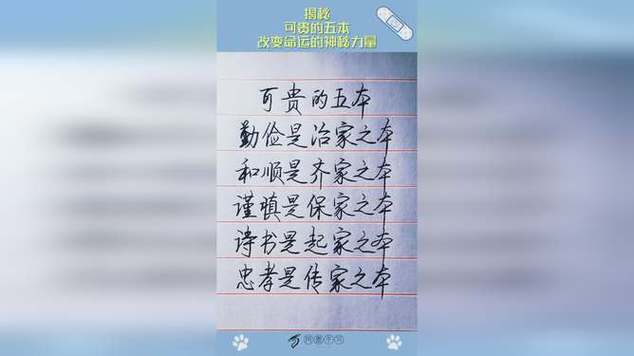 揭秘
可贵的五本
改变命运的神秘力量
可贵的五本
勤俭是治家之本
和顺是齐家之本
谨慎是保家之本
诗书是起家之本
忠孝是传家之本